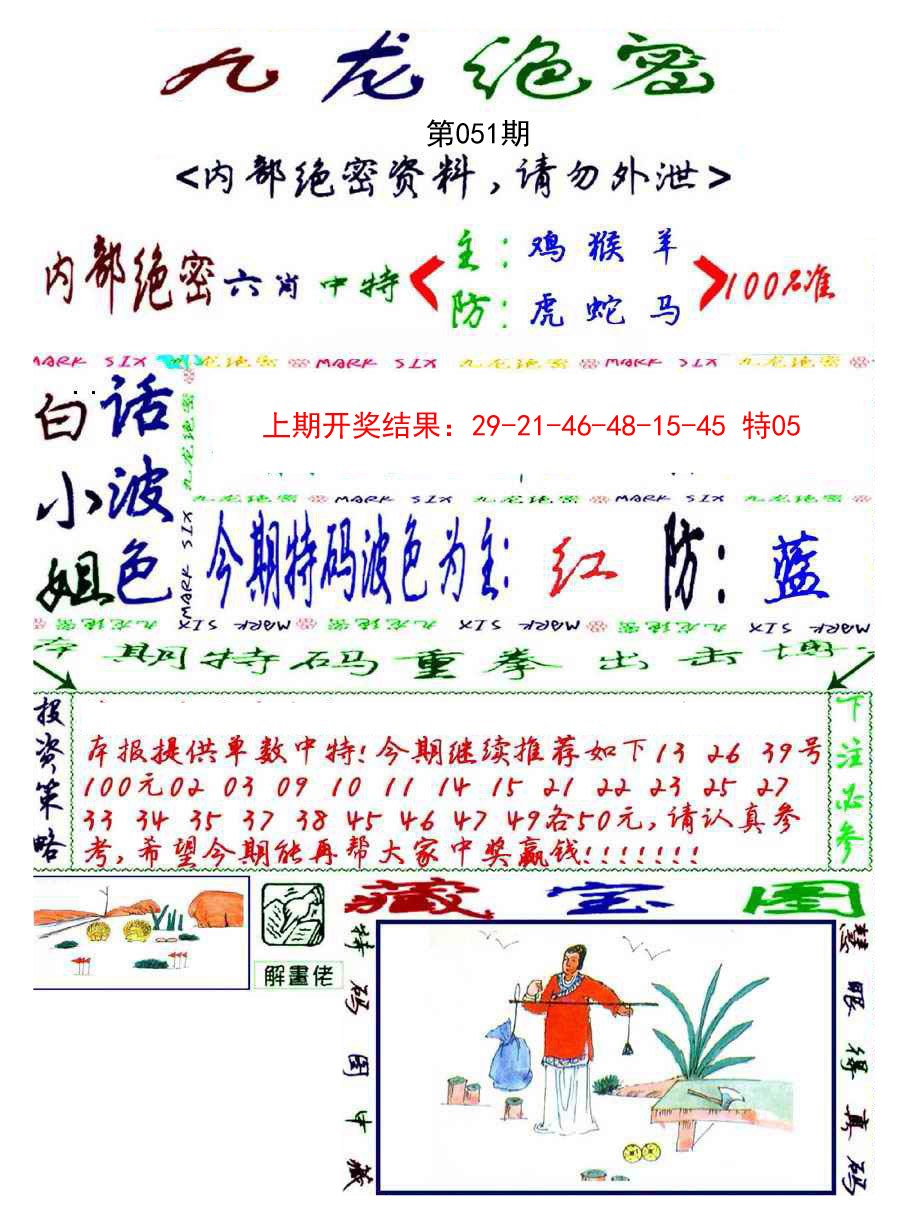 九龙绝密
第051期
<内部绝密资料,请勿外泄>
内部绝密六肖中特
主:鸡猴羊
防:虎蛇马
100%准
MARK SIX 九龙绝密 MARK SIX 九龙绝密 MARK SIX 九龙绝密
白小姐
话波色
九龙绝密 MARK SIX
上期开奖结果：29-21-46-48-15-45 特05
九龙绝密 MARK SIX 九龙绝密 MARK SIX 九龙绝密
今期特码波色为主:红 防:蓝
九龙绝密 MARK SIX 九龙绝密 MARK SIX 九龙绝密 MARK SIX
期特码重拳出击
投资策略
本报提供单数中特!今期继续推荐如下13 26 39号
100元02 03 09 10 11 14 15 21 22 23 25 27
33 34 35 37 38 45 46 47 49各50元,请认真参
考,希望今期能再帮大家中奖赢钱!!!!!!!
下注必参
藏宝图
解畫佬
特码图中藏
慧眼得真码